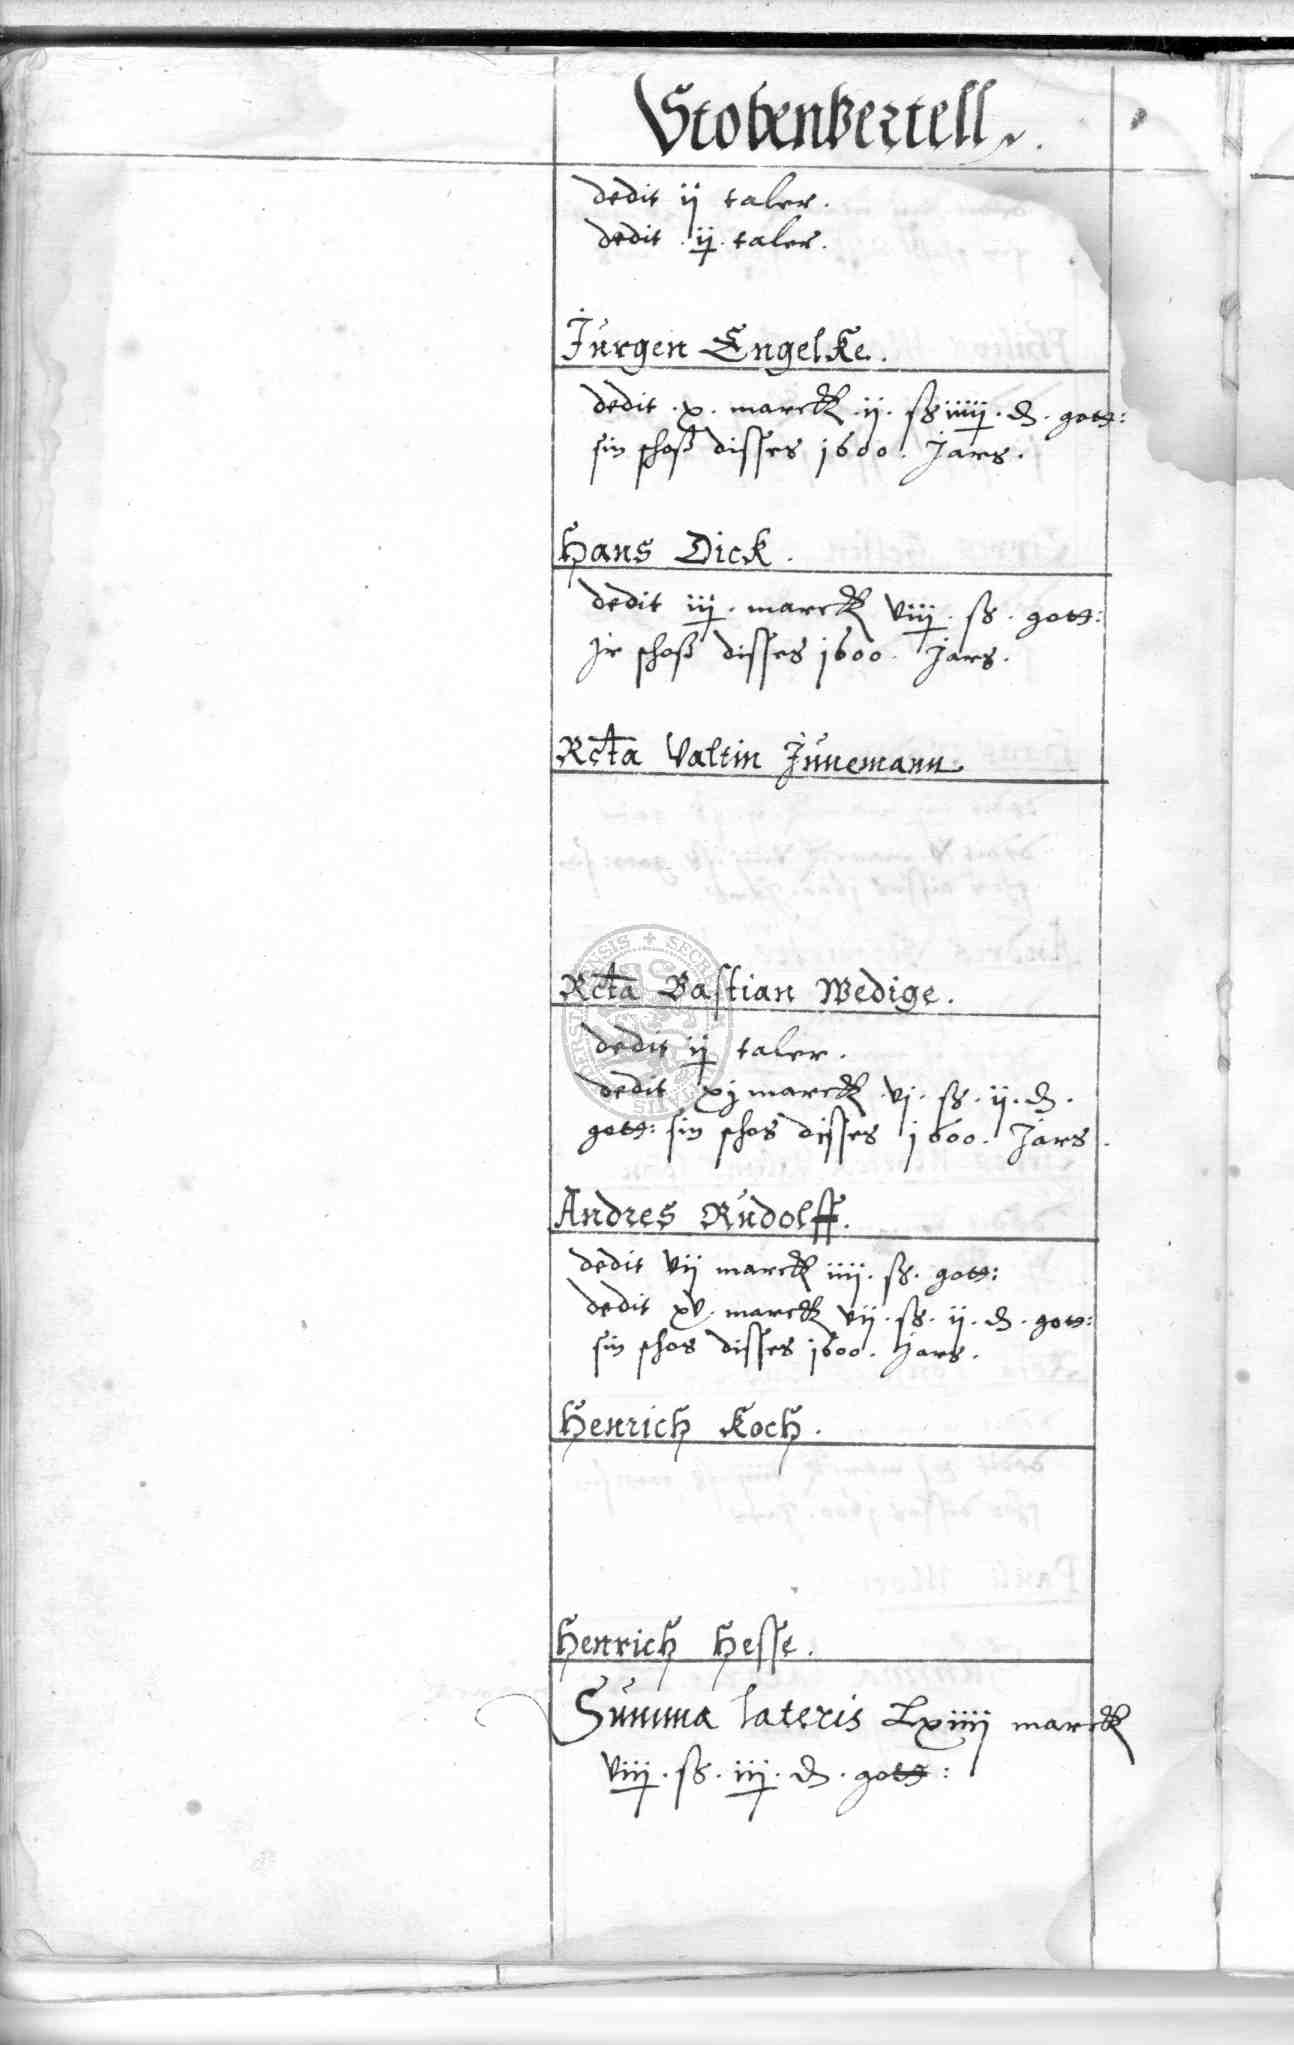 Stobenvertell.
dedit ij taler.
dedit ij taler.
Jürgen Engelke.
dedit .x. marck .ij. ß iiij . ₰ . gott:
sin schoß disses 1600. Jars.
Hans Dick.
dedit iij . marck viij . ß . gott:
Jr schoß disses 1600. Jars.
Rcta Valtin Jünemann
Rcta Bastian Wedige.
dedit ij taler.
dedit xj marck .vj. ß . ij . ₰ .
gott: sin schos disses 1600. Jars.
Andres Rüdolff.
dedit vij marck iiij . ß . gott:
dedit xv . marck vij . ß . ij . ₰ . gott:
sin schos disses 1600. Jars.
Henrich Koch.
Henrich Hesse.
Summa lateris Lxiiij marck
viij . ß . iij . ₰ . gott: